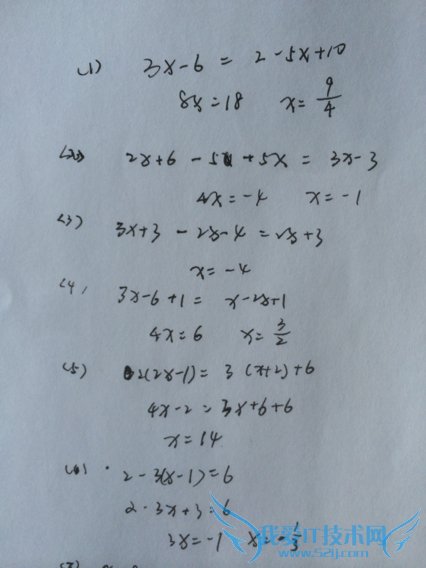 (1) 3x-6 = 2-5x+10
8x=18 x=9/4
(2) 2x+6 -5 +5x = 3x-3
4x=-4 x=-1
(3) 3x+3 -2x-4=2x+3
x=-4
(4) 3x-6+1= x-2x+1
4x=6 x=3/2
(5) 2(2x-1)= 3 (x+2)+6
4x-2=3x+6+6
x=14
(6) 2-3(x-1)=6
2-3x+3=6
3x=-1 x=-1/3
我爱IT技术网
www.52ij.com